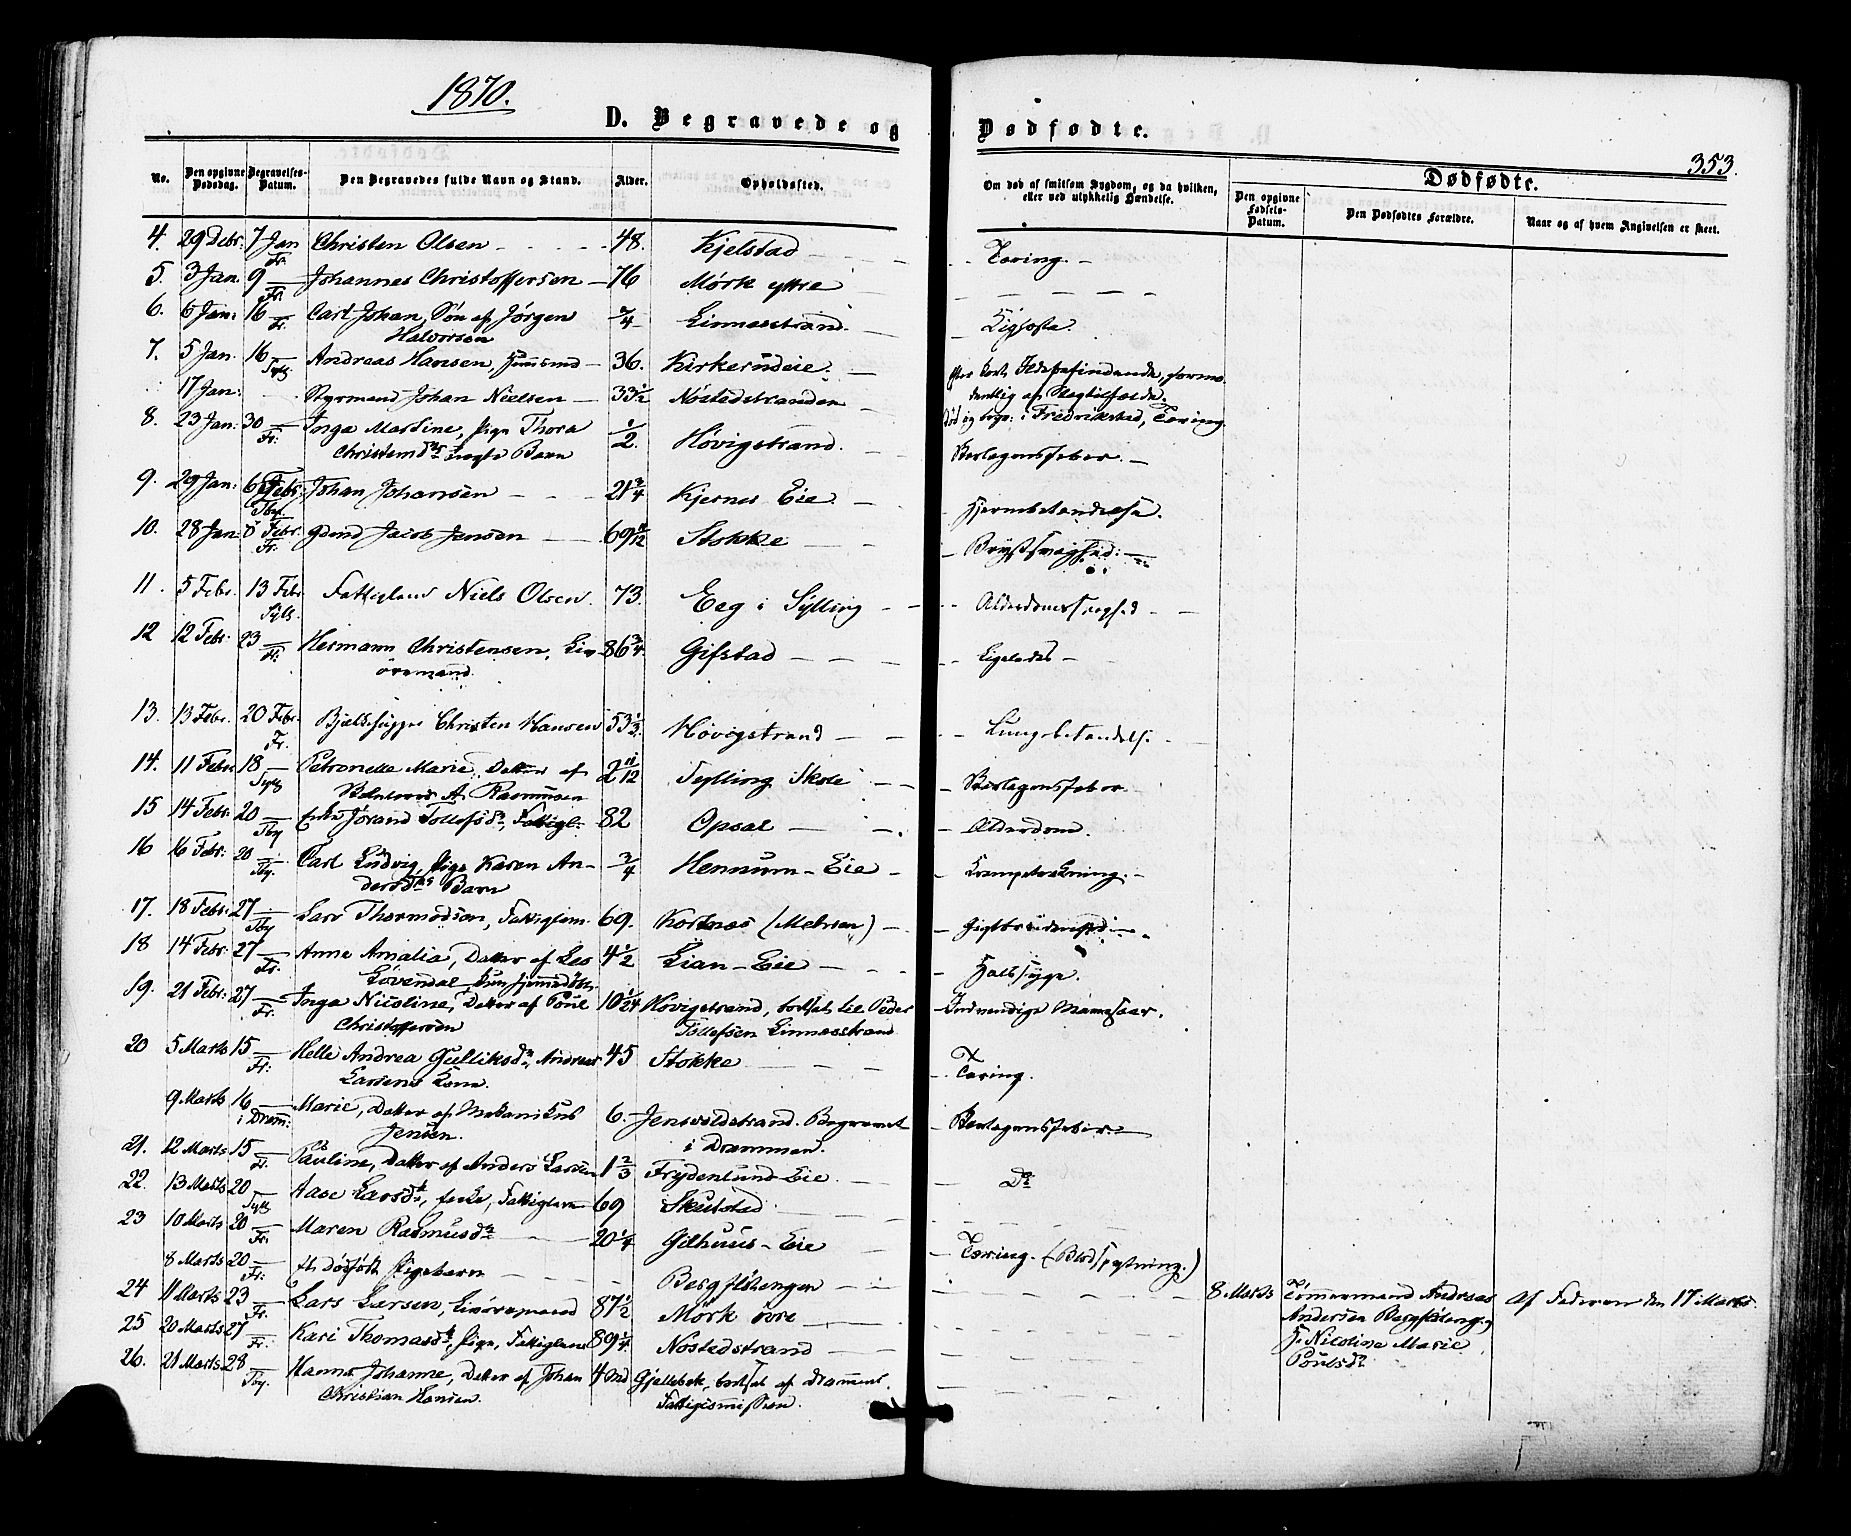 1870.
D. Begravede og Dødfødte.
353.
No. Den opgivne Dødsdag. Begravelses-Datum. Den Begravedes fulde Navn og Stand. Alder. Opholdssted. Om død af smitsom Sygdom, og da hvilken, eller ved ulykkelig Hændelse. Dødfødte.
Den opgivne Fødsels-Datum. Den Dødfødtes Forældre. Naar og af hvem Angivelsen er skeet.
4. 29 Debr: 7 Jan Fr. Christen Olsen 48. Kjelstad Tæring.
5. 3 Jan. 9 Fr. Johannes Christoffersen 76 Mörk yttre
6. 6 Jan: 16 Fr. Carl Johan, Søn af Jørgen 3/4 Linnæsstrand. Kighoste.
Halvorsen
7. 5 Jan. 16 Sylg Andreas Hansen, Huusmd 36. Kirkerudeie. efter Ildebefindende, formo
dentlig af Slagtilfælde.
17 Jan: Styrmand Johan Nielsen 33 1/2 Nöstedstranden Död og begr: i Fredrikstad, Tæring
8. 23 Jan: 30 Fr: Inga Martine, Pige Thora 1/2. Hövigstrand. Betlagensfeber.
Christensd uægte Barn
9. 29 Jan: 6 Febr: Tby Johan Johansen 21 3/4 Kjernes Eie Hjernebetændelse.
10. 28 Jan: 8 Febr. Fr. Gbmd Jacob Jensen 69 11/12 Stokke Brystsvaghed:
11. 5 Febr. 13 Febr Sylg. Fattiglem Niels Olsen. 73. Eeg i Sylling Alderdomssvaghed
12 12 Febr: 23 Fr: Hermann Christensen, Liv- 86 3/4. Gifstad Ligeledes
öremand.
13. 13 Febr. 20 Febr. Fr. Bjælkehugger Christen Hansen 53 1/2 Hövigstrand Lungebetændelse.
14. 11 Febr 18 Sylg Petronelle Marie, Datter af 2 11/12 Sylling Skole Betlagensfeber.
A. Rasmusen
15 14 Febr: 20 Tby Enke Jörand Tollefsd, Fattigl. 82 Opsal Alderdom.
16 16 Febr: 20 Tby. Carl Ludvig, Pige Karen An- 3/4 Hennum-Eie Krampetrækning.
dersds Barn
17. 18 Febr: 27 Tby Lars Thormodsen, Fattiglem. 69. Kortnæs (Mehren)
18 14 Febr: 27 Fr: Anne Amalia, Datter af 4 1/2 Lian-Eie Halssyge.
Lövendal
19. 21 Febr: 27 Fr: Inga Nicoline, Datter af Poul 10 1/24 Hövigstrand, bortsat til Peder Indvendige Mavesaar.
Christoffersen Tollefsen Linnæsstrand
20 5 Marts 15 Fr: Helle Andrea Gulliksd, Andreas 45 Stokke Tæring.
Larsens Kone.
9 Marts 16 i Dram: Marie, Datter af Mekanikus 6. Jensvoldstrand. Begravet Betlagensfeber.
Jensen. i Drammen.
21. 12 Marts 15 Fr. Pauline, Datter af Anders Larsen 1 2/3 Frydenlund-Eie Do
22. 13 Marts 20 Sylg Aase Larsd, Enke, Fattiglem 69 Skulstad
23 10 Marts 20 Fr. Maren Rasmusd 20 1/4 Gilhuus-Eie Tæring. (Blodspytning.)
8 Marts 20 Fr: Et Dödfödt Pigebarn Bergflötengen 8 Marts Tömmermand Andreas Af Faderen den 17 Marts.
24 11 Marts 23 Fr. Lars Larsen, Livöremand 87 1/2 Mörk övre Andersen Bergflöteng og
25 20 Marts 27 Fr. Kari Thomasd, Pige, Fattiglem 89 1/4 Nöstedstrand H. Nicoline Marie
26. 21 Marts 28 Tby. Hanna Johanne, Datter af Johan 4 Md Gjellebek, bortsat af Drammens Poulsd
Christian Hansen. Fattigcommission.